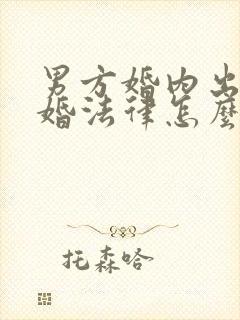 男方婚内出
婚法律怎麼
托森哈